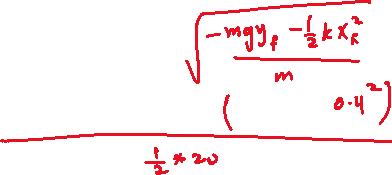 √(-mgy_f - 1/2 k x_f^2)
m
( 0.4^2)
1/2 * 20